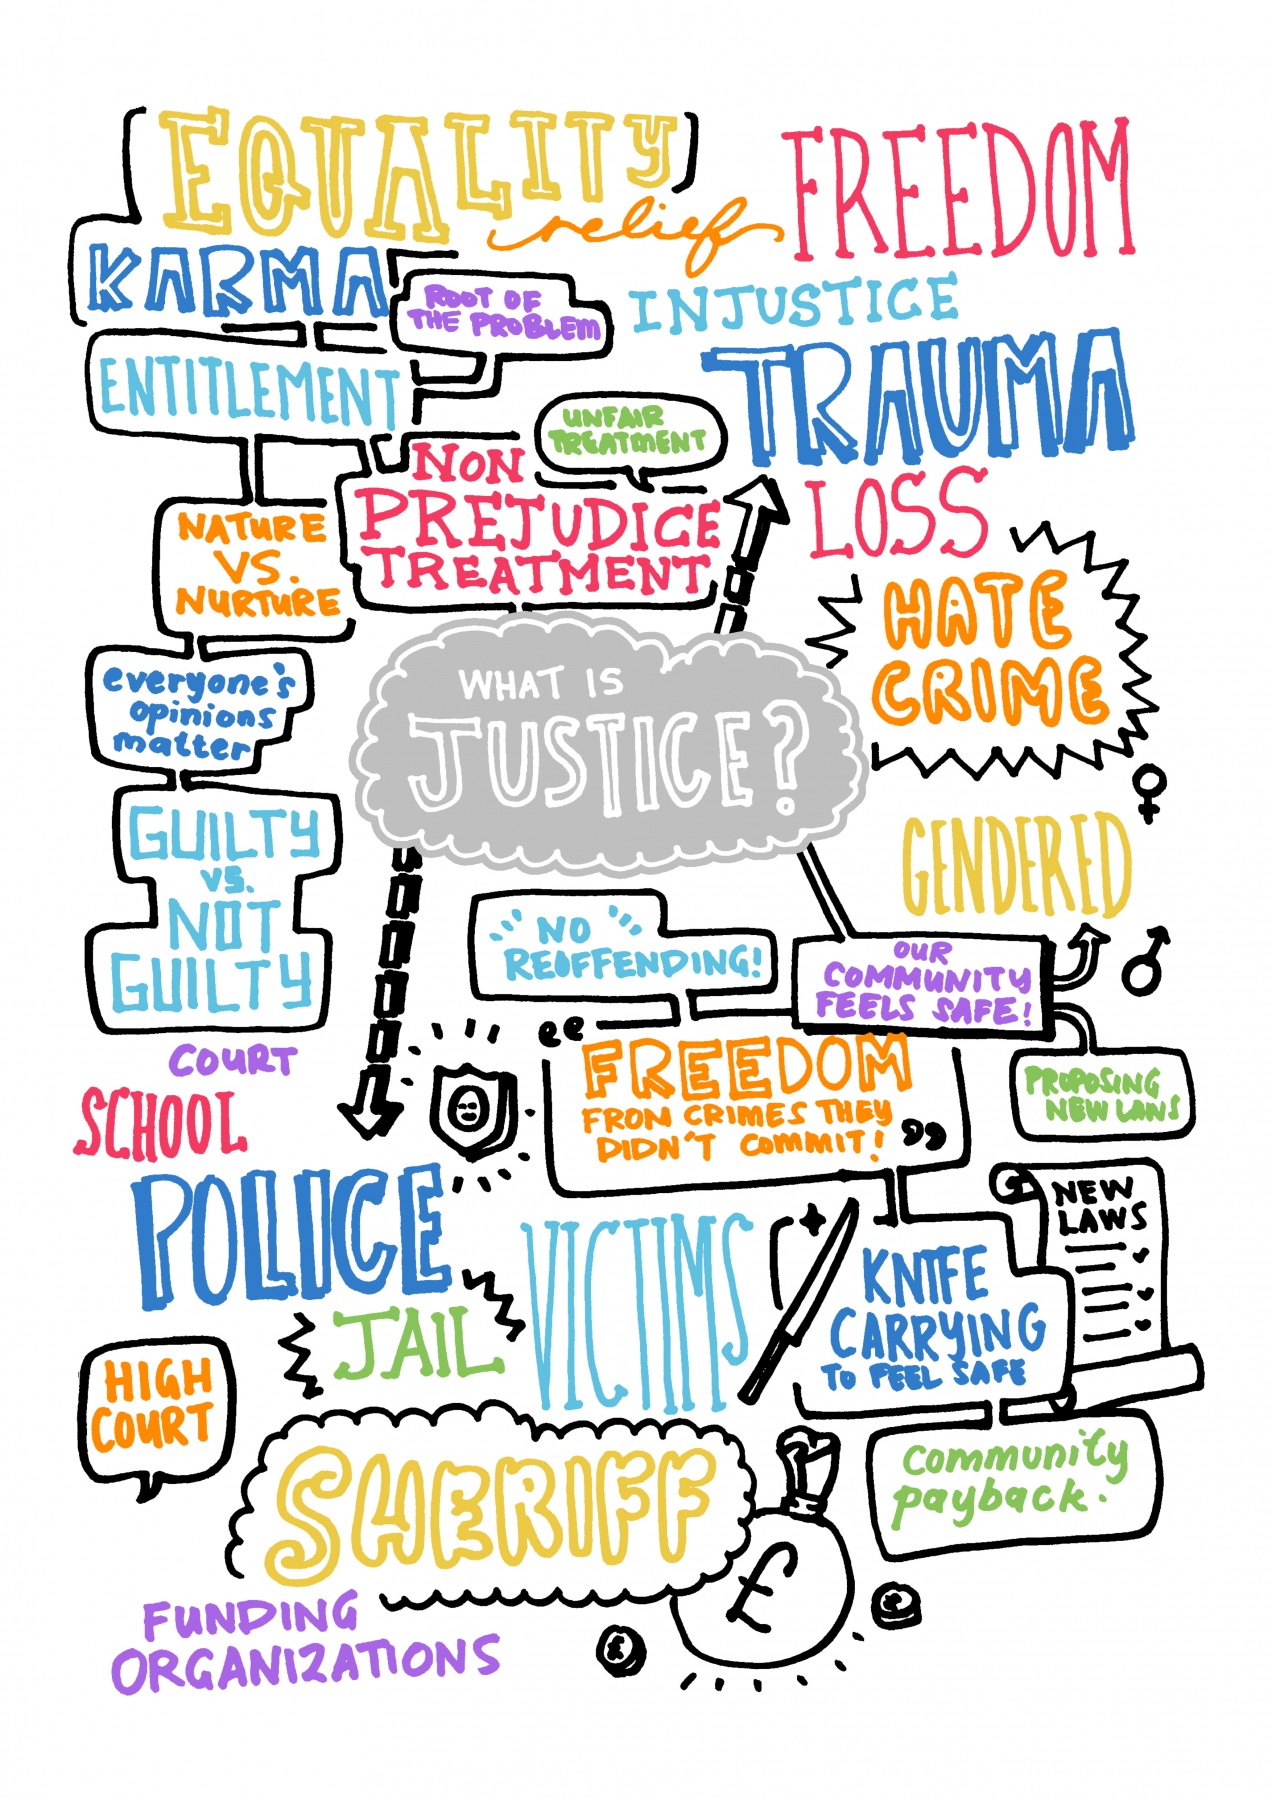 EQUALITY
relief
FREEDOM
KARMA
ROOT OF
THE PROBLEM
INJUSTICE
ENTITLEMENT
TRAUMA
UNFAIR
TREATMENT
NON
PREJUDICE
TREATMENT
LOSS
NATURE
VS.
NURTURE
HATE
CRIME
everyone's
opinions
matter
WHAT IS
JUSTICE?
GUILTY
VS.
NOT
GUILTY
GENDERED
"NO
REOFFENDING!
OUR
COMMUNITY
FEELS SAFE!
COURT
SCHOOL
"FREEDOM
FROM CRIMES THEY
DIDN'T COMMIT!"
PROPOSING
NEW LAWS
POLICE
NEW
LAWS
VICTIMS
JAIL
KNIFE
CARRYING
TO FEEL SAFE
HIGH
COURT
SHERIFF
community
payback.
£
£
£
FUNDING
ORGANIZATIONS